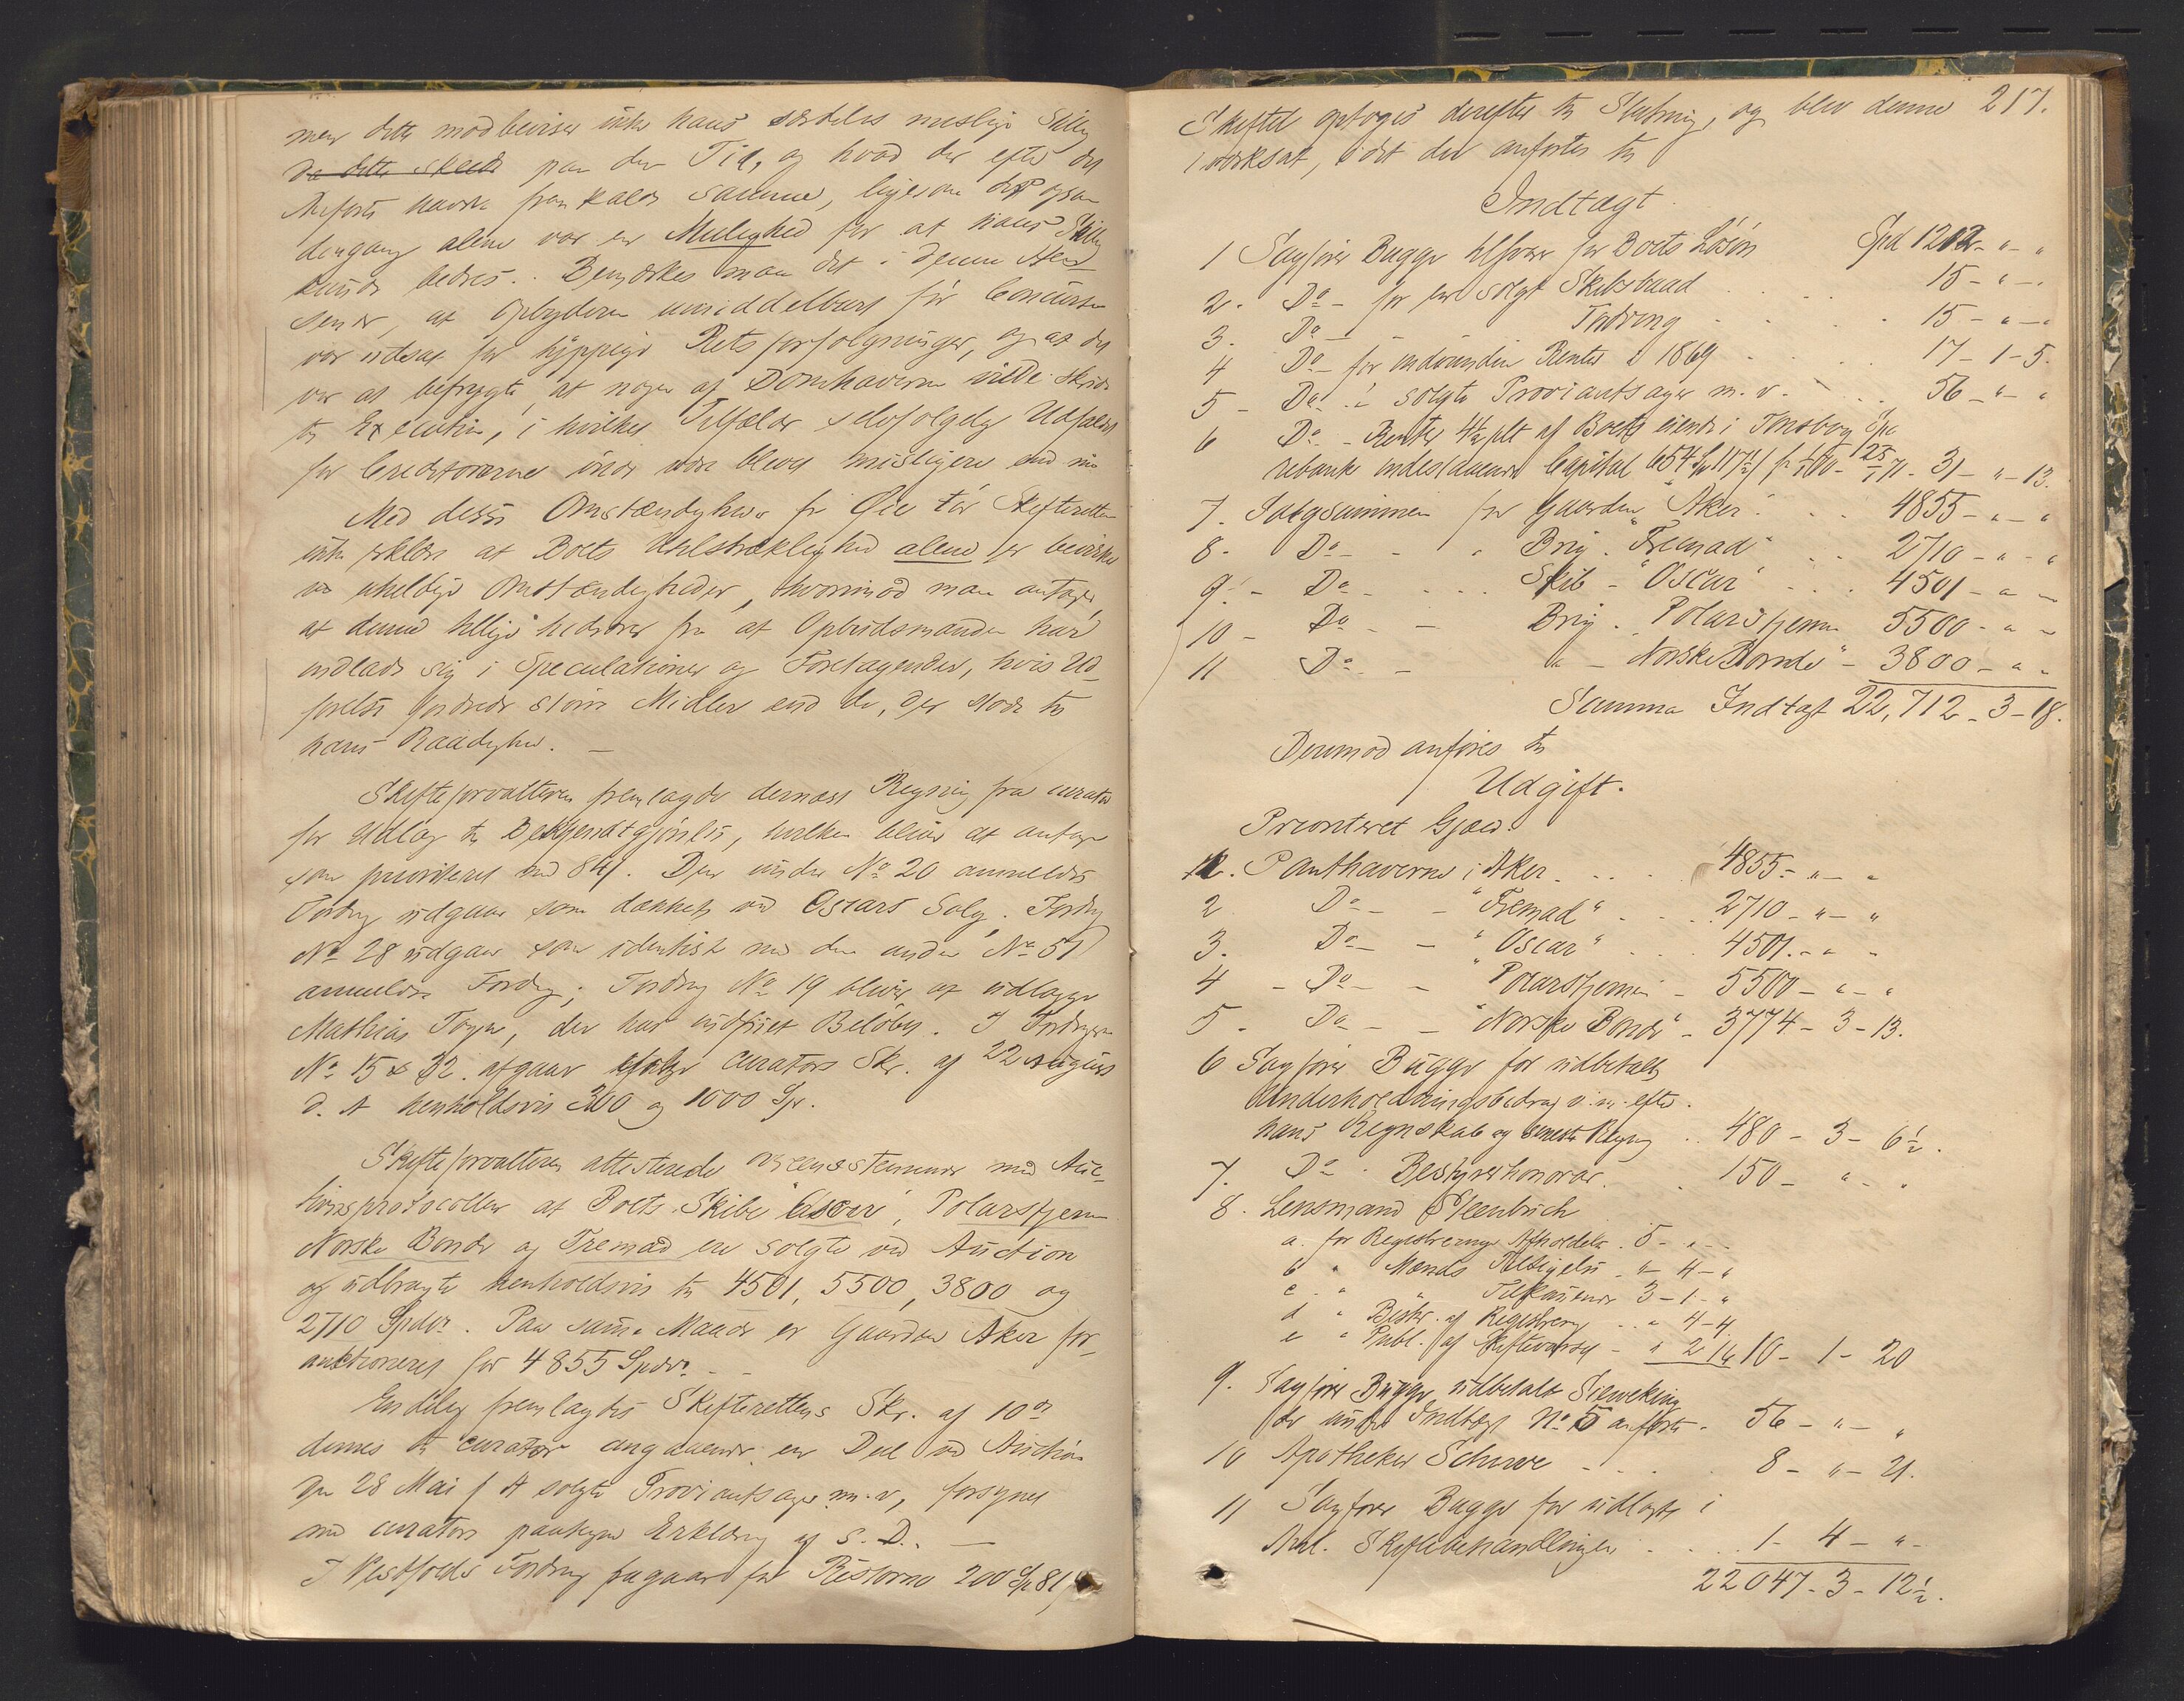 men dette modbeviser ikke hans særdeles mislige Stilling
da dette skede paa den Tid, og hvad der efter det
Anførte havde fremkaldt samme, ligesom det ogsaa
dengang alene var en Mulighed for at hans Stilling
kunde bedres. Bemærkes maa det i denne Hen-
seende, at Opbyderen umiddelbart før Concursen
var udsat for hyppige Retsforfølgninger, og at det
var at befrygte, at nogen af Domhaverne vilde skride
til Execution, i hvilket Tilfælde selvfølgelig Udfaldet
for Creditorerne vilde være blevet misligere end nu
Med disse Omstændigheder for Øie tør Skifteretten
ikke erklære at Boets Utilstrækkelighed alene er bevirket
ved uheldige Omstændigheder, hvorimod man antager,
at denne tillige hidrører fra at Opbudsmanden har
indladt sig i Speculationer og Foretagender, hvis Ud-
førelse fordrede større Midler end de, der stode til
hans Raadighed. —
Skifteforvalteren fremlagde dernæst Regning fra curator
for Udlæg til Bekjendtgjørelse, hvilken bliver at antage
som prioriteret med 84 ß. Den under No 20 anmeldte
Fordring udgaar som dækket ved Oscars Salg. Fordring
No 28 udgaar som identisk med den under No 51
anmeldte Fordring; Fordring No 19 bliver at udlægge
Mathias Foyn, der har indfriet Beløbet. I Fordringerne
No 15 & 32 afgaar ifølge curators Skr. af 22 August
d. A henholdsvis 300 og 1000 Spd.
Skifteforvalteren attesterede overensstemmende med Auc-
tionsprotocollen at Boets Skibe "Oscar", Polarstjernen
Norske Bonde og Fremad ere solgte ved Auction
og udbragte henholdsvis til 4501, 5500, 3800 og
2710 Spdlr. Paa samme Maade er Gaarden Aker for-
auktioneret for 4855 Spdlr. —
Endelig fremlagdes Skifterettens Skr. af 10de
dennes til curator angaaende en Deel ved Auction
den 28 Mai f A solgte Proviantsager m.v., forsynet
med curators paategnede Erklæring af s. D. —
I Vestfolds Fordring fragaar for Ristorno 200 Spd 81 ß
217.
Skiftet optoges derefter til Slutning, og blev denne
iværksat, idet der anførtes til
Indtægt.
1 Sagfører Bugge tilsvarer for Boets Løsøre Spd 1212 - " - "
2. Do - for en solgt Skibsbaad . . . . 15 - " - "
3. Do - - - Fordring . . . 15 - " - "
4 Do - for indvundne Renter i 1869 . . . 17 - 1 - 5.
5 - Do - i solgte Proviantsager m. v. . . 56 - " - "
6 Do - Renter 4½ pCt af Boets eiende i Tønsberg Spa-
rebank indestaaende Capital 654 Spd 117 ß fr 1/1 70 - 25/1 71 - 31 - " - 13.
7. Salgsummen for Gaarden Aker . . . 4855 - " - "
8. Do - - " Brig "Fremad" . . 2710 - " - "
9. - Do - . . . Skib - "Oscar" . . . 4501 - " -
10 - Do - - Brig "Polarstjernen 5500 - " -
11 Do - " - "Norske Bonde" - 3800 - " - "
Summa Indtægt 22,712 - 3 - 18.
Derimod anføres til
Udgift.
Prioriteret Gjæld.
1. Panthaverne i Aker . . . . 4855 - " - "
2 Do - - "Fremad" . . . 2710 - " - "
3. Do - - "Oscar" . . . 4501. - " -
4 - Do - - "Polarstjernen - 5500 - " - "
5 - Do - - "Norske Bonde" - 3774 - 3 - 13.
6 Sagfører Bugge for udbetalt
Underholdningsbidrag o. m. efter
hans Regnskab og seneste Regning . . 480 - 3 - 6½.
7. Do . Bestyrerhonorar. . 150 - " - "
8. Lensmand Steenbuch
a. for Registrerings Afholdelse . 5 - " -
b " Mænds Tilsigelse . " - 4 - "
c. " " Tilstævnende 3 - 1 - "
d " Beskr. af Registrering . . " 4 - 4
e " Publ. af Skiftevarsel - " 2 16 10 - 1 - 20
9. Sagfører Bugge udbetalt Sieweking
de under Indtægt No 5 anførte . 56 - " - "
10 Apotheker Schive - . . . 8 - " - 21.
11 Sagfører Bugge for udlagte i
Anl. Skiftebehandlingen . . . 1 - 4 - " -
22047 - 3 - 12½.